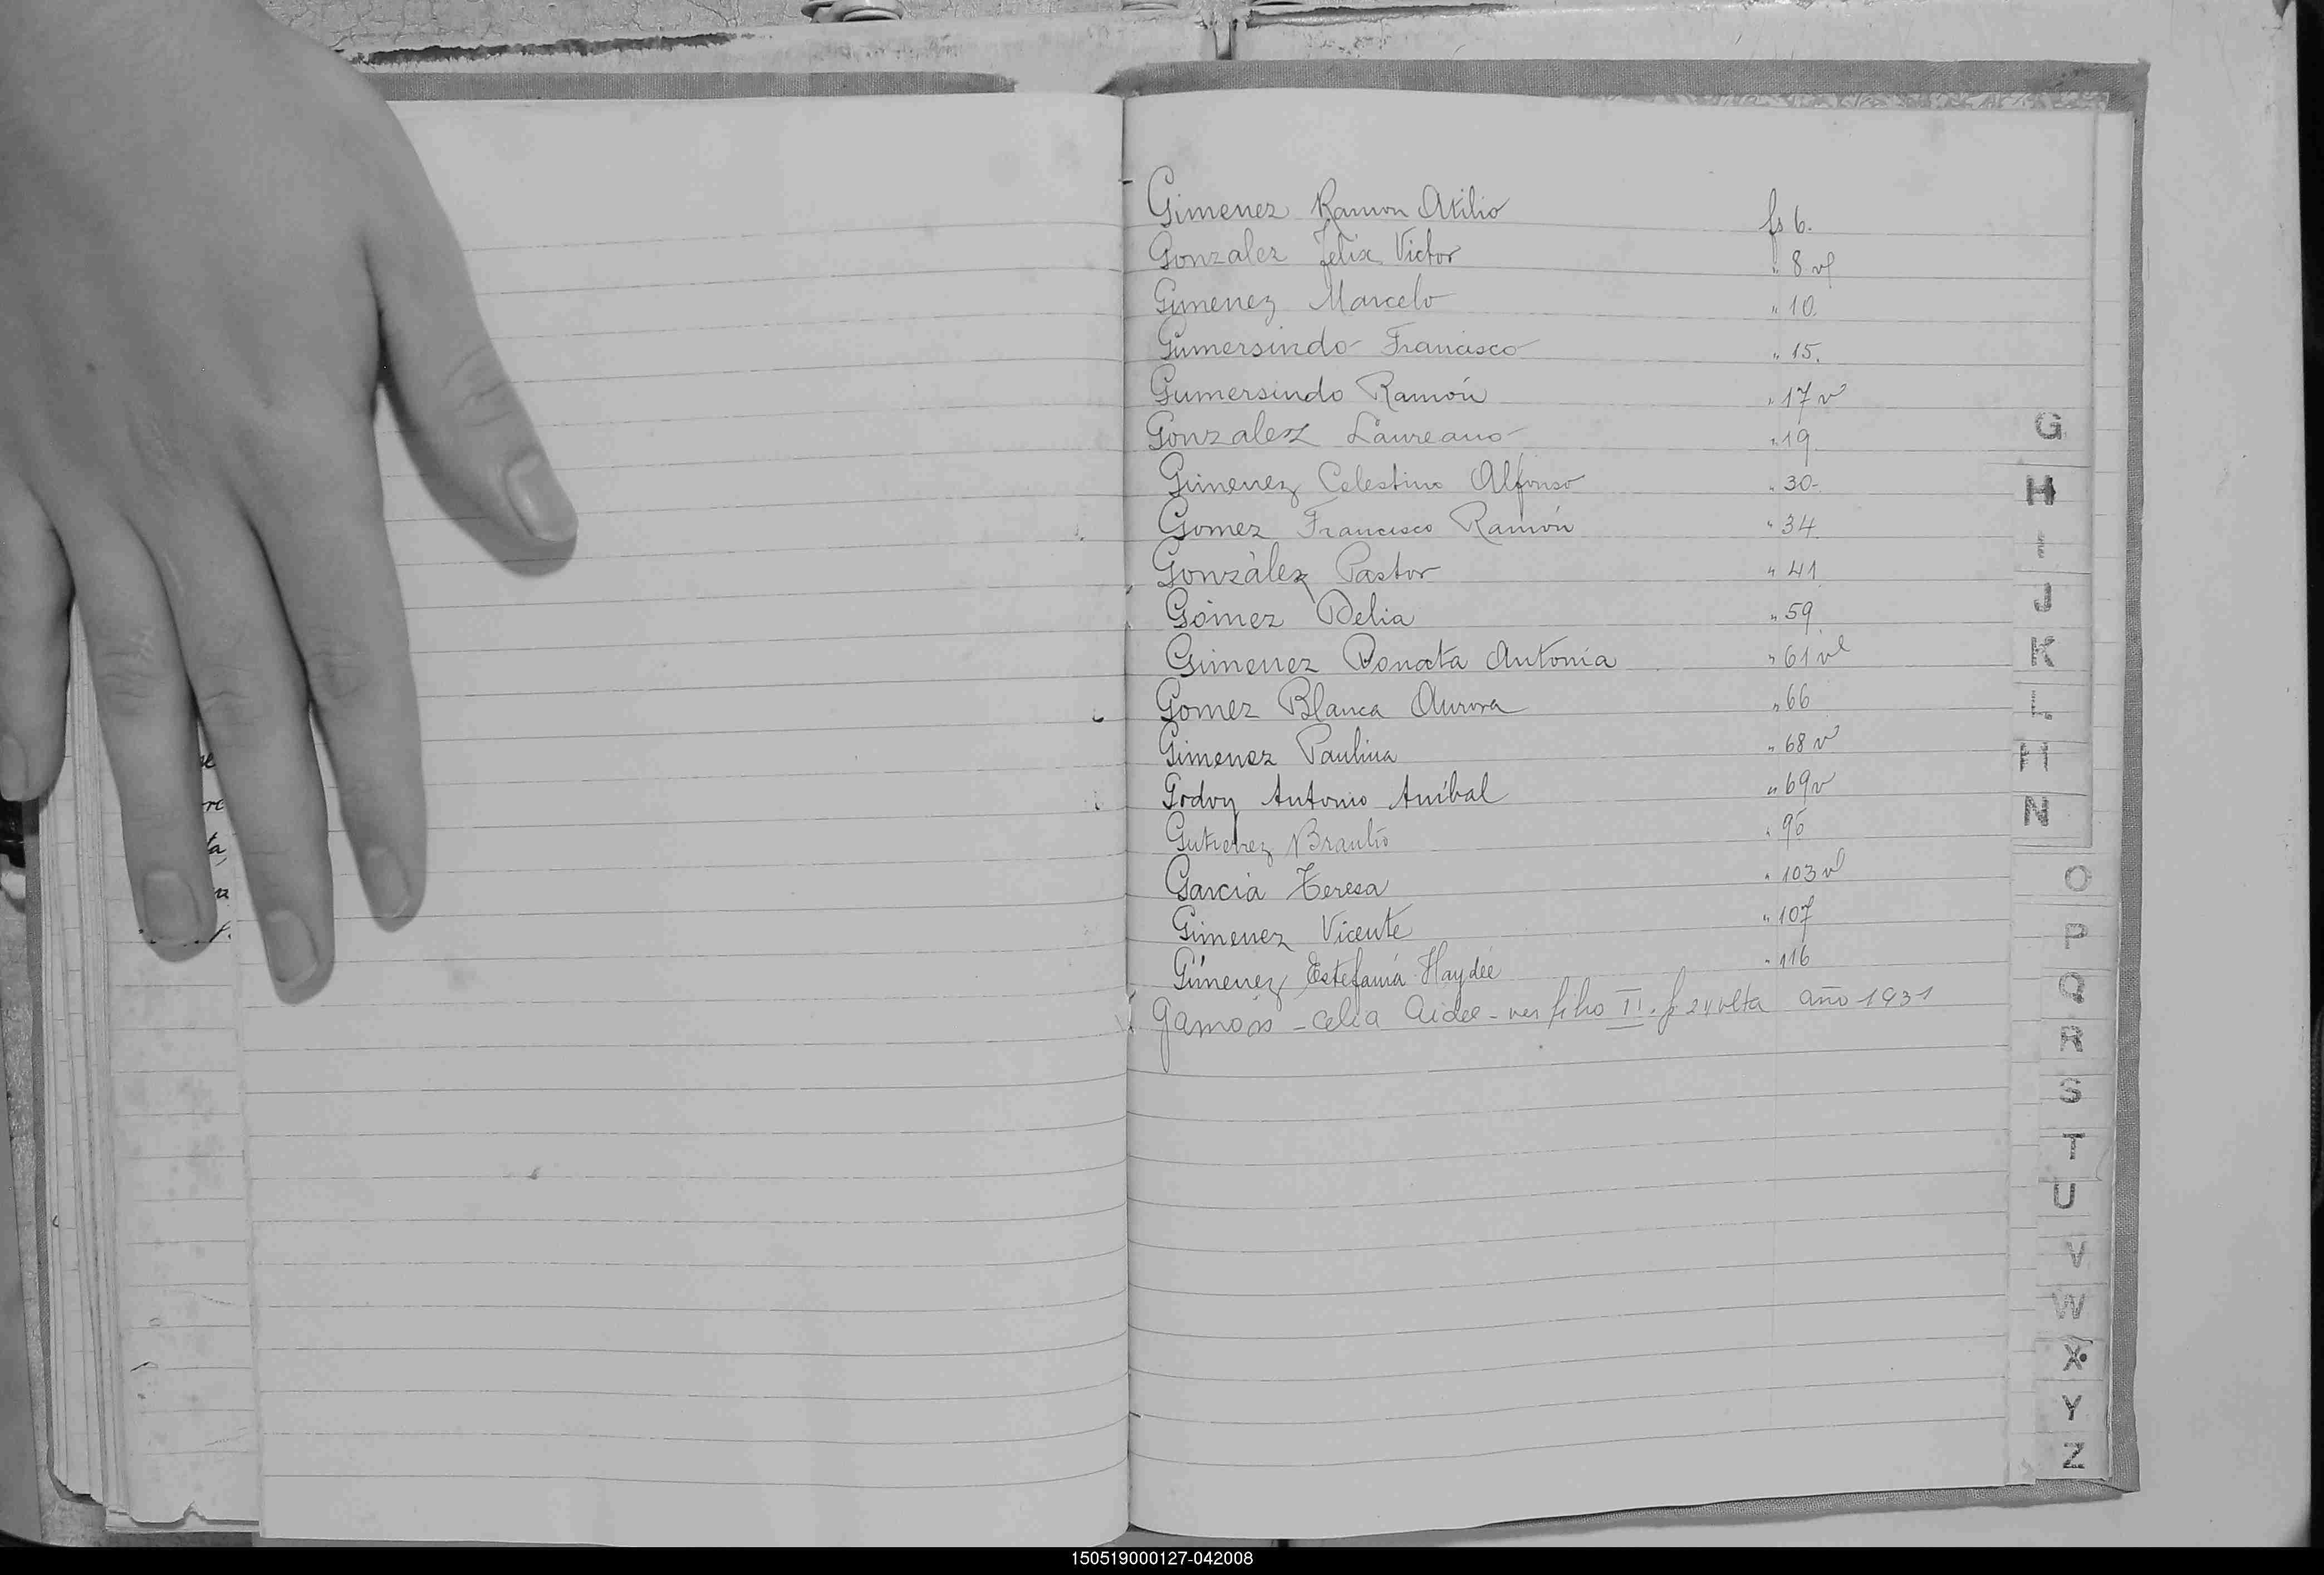 Gimenez Ramon Atilio fs 6.
Gonzalez Felix Victor " 8 vl
Gimenez Marcelo " 10.
Gumersindo Francisco " 15.
Gumersindo Ramón " 17 v
Gonzalez Laureano " 19
Gimenez Celestino Alfonso " 30-
Gomez Francisco Ramón " 34.
Gonzàlez Pastor " 41
Gómez Delia " 59
Gimenez Donata Antonia " 61 vl
Gomez Blanca Aurora " 66
Gimenez Paulina " 68 v
Godoy Antonio Aníbal " 69 v
Gutierrez Braulio " 95
Garcia Teresa " 103 vl
Gimenez Vicente " 107
Gimenez Estefanía Haydée " 116
Celia Aidee - ver folio II. año 1931
G
H
I
J
K
L
M
N
O
P
Q
R
S
T
U
V
W
X
Y
Z
150519000127-042008